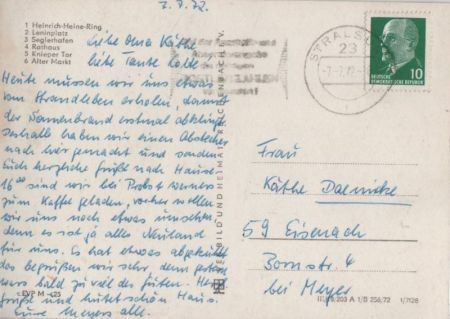 7.7.72.
1 Heinrich-Heine-Ring
2 Leninplatz
3 Seglerhafen
4 Rathaus
5 Knieper Tor
6 Alter Markt
Liebe Oma Käthe
liebe Tante Lotte
Heute müssen wir uns etwas
vom Strandleben erholen, damit
der Sonnenbrand erstmal abklingt.
Deshalb haben wir einen Abstecher
nach hier gemacht und senden
Euch herzliche Grüße nach Hause.
16⁰⁰ sind wir bei Probst Werners
zum Kaffee geladen, vorher wollen
wir uns noch etwas umsehen
denn es ist ja alles Neuland
für uns. Es hat etwas abgekühlt
das begrüßen wir sehr, denn gestern
wars bald zu viel des Guten.
Grüße und hütet schön Haus.
Eure Meyers alle.
EVP M -,25
VEB BILD UND HEIMAT REICHENBACH I. V.
STRALSUND
23
-7.-7.72
10
DEUTSCHE
DEMOKRATISCHE REPUBLIK
Frau
Käthe
59 Eisenach
Bornstr. 4
bei Meyer
203 A 1/B 256/72 1/7128